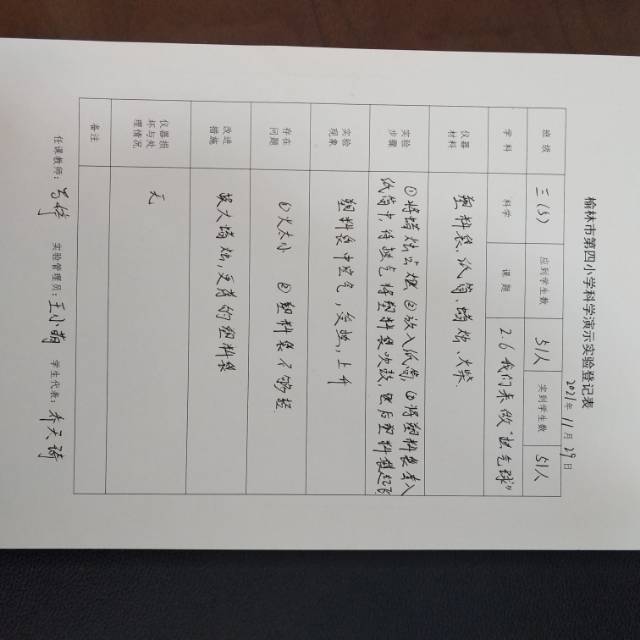 榆林市第四小学科学演示实验登记表
2021年11月29日
班级 三(3) 应到学生数 51人 实到学生数 51人
学科 科学 课题 2.6我们来做"热气球"
仪器材料 塑料袋、纸筒、蜡烛、火柴
实验步骤 ①将蜡烛点燃 ②放入纸筒, ③将塑料袋套入
纸筒中, 待热气将塑料袋吹鼓, 最后塑料袋起飞
实验现象 塑料袋中空气,受热,上升
存在问题 ①火太小 ②塑料袋不够轻
改进措施 放大蜡烛,更薄的塑料袋
仪器损坏与处理情况 无
备注
任课教师: 实验管理员:王小莉 学生代表:乔天琦